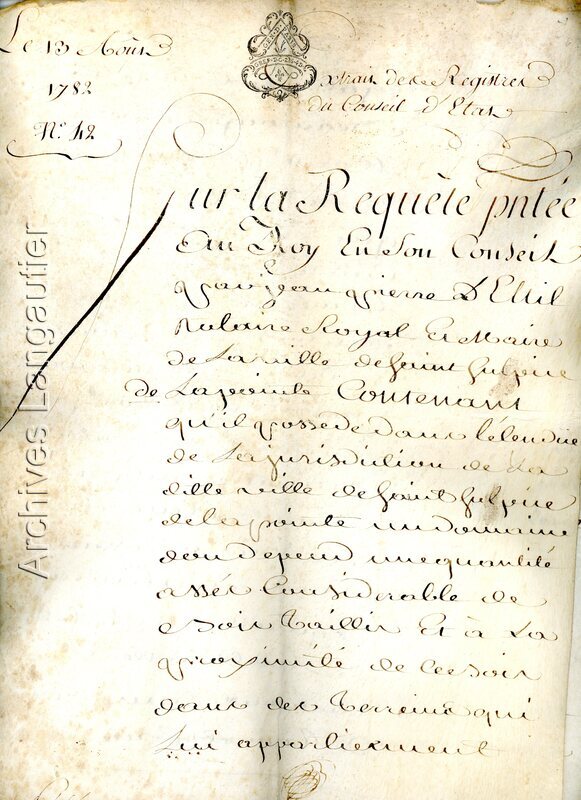 Le 13 Aoust
1782
N.º 42
Extrait des Registres
du Conseil d'Etat
Sur la Requête pntée
Au Roy En Son Conseil
par jean pierre D'Elh
notaire Royal Et Maire
de La ville de Saint Sulpice
de Lapointe Contenant
qu'il possede dans l'etendue
de La jurisdiction de La
ditte ville de Saint Sulpice
de lapointe un domaine
dont depend une quantité
assés Considerable de
bois Taillis Et à La
proximité de ces bois
dans des Terreins qui
Lui appartiennent
Archives Langautier